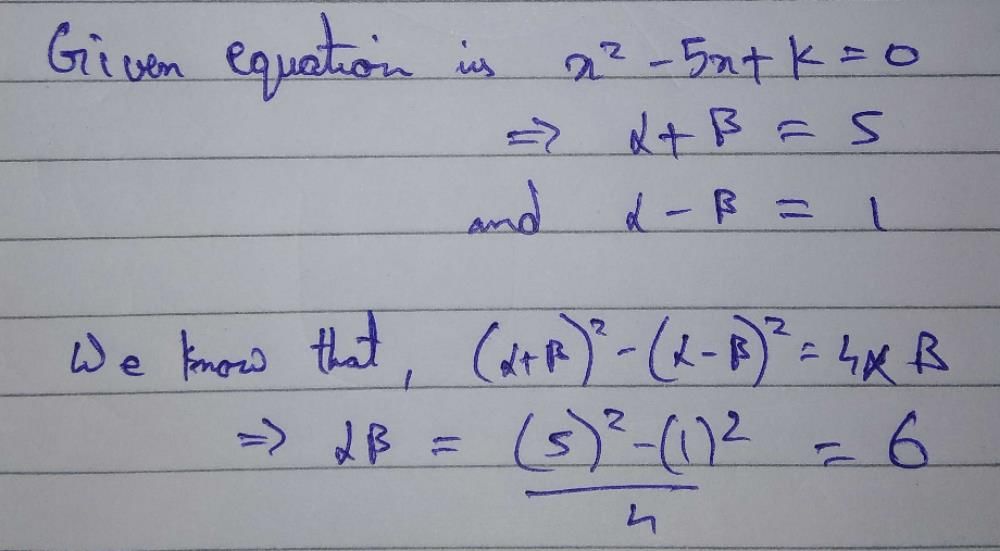 Given equation is x² - 5x + k = 0
⇒ α + β = 5
and α - β = 1
We know that, (α+β)² - (α-β)² = 4αβ
⇒ αβ = (5)² - (1)² = 6
4